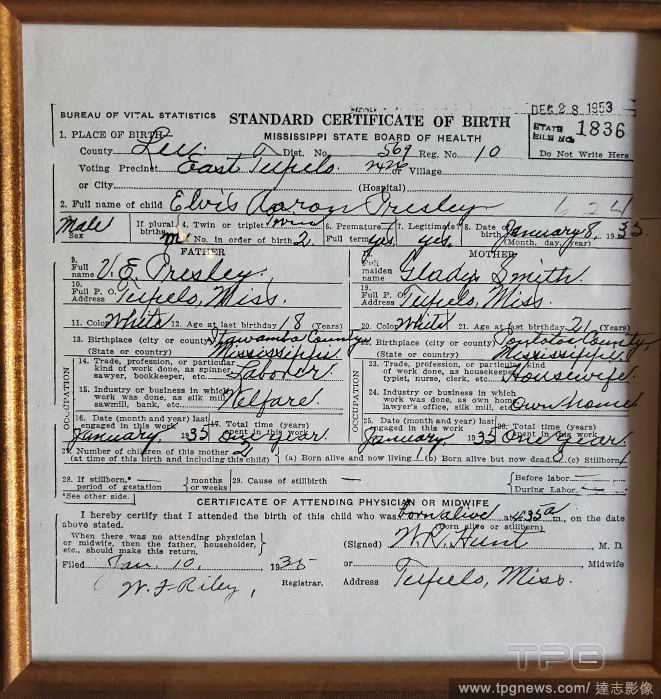 DEC 28 1953
BUREAU OF VITAL STATISTICS STANDARD CERTIFICATE OF BIRTH
STATE FILE NO. 1836
1. PLACE OF BIRTH MISSISSIPPI STATE BOARD OF HEALTH
Do Not Write Here
County Lee Dist. No. 569 Reg. No. 10
Voting Precinct East Tupelo. or Village
or City (Hospital)
2. Full name of child Elvis Aaron Presley
Male Sex If plural births 4. Twin or triplet Twin 6. Premature 7. Legitimate? 8. Date of birth January 8, 1935.
No. in order of birth 2 Full term yes yes. (Month, day, year)
FATHER MOTHER
9. Full name V. E. Presley. Full maiden name Gladys Smith.
10. Full P. O. Address Tupelo, Miss. 19. Full P. O. Address Tupelo, Miss.
11. Color White 12. Age at last birthday 18 (Years) 20. Color White 21. Age at last birthday 21 (Years)
13. Birthplace (city or county) Itawamba County Birthplace (city or county) Pontotoc County
(State or country) Mississippi (State or country) Mississippi
OCCUPATION
14. Trade, profession, or particular kind of work done, as spinner, sawyer, bookkeeper, etc. Laborer
15. Industry or business in which work was done, as silk mill, sawmill, bank, etc. Welfare.
16. Date (month and year) last engaged in this work January 1935 17. Total time (years) spent in this work One year.
OCCUPATION
23. Trade, profession, or particular kind of work done, as housekeeper, typist, nurse, clerk, etc. Housewife
24. Industry or business in which work was done, as own home, lawyer's office, silk mill, etc. Own home
25. Date (month and year) last engaged in this work January 1935 26. Total time (years) spent in this work One year.
27. Number of children of this mother 2
(at time of this birth and including this child) (a) Born alive and now living 1 (b) Born alive but now dead (c) Stillborn 1
28. If stillborn,* period of gestation months or weeks 29. Cause of stillbirth Before labor
During Labor
*See other side. CERTIFICATE OF ATTENDING PHYSICIAN OR MIDWIFE
I hereby certify that I attended the birth of this child who was Born alive at 4:35 a m., on the date
above stated. (Born alive or stillborn)
When there was no attending physician
or midwife, then the father, householder,
etc., should make this return.
(Signed) W. R. Hunt M. D.
Filed Jan. 10, 1935 or Midwife
W. F. Riley, Registrar. Address Tupelo, Miss.
TPG
www.tpgnews.com / 達志影像